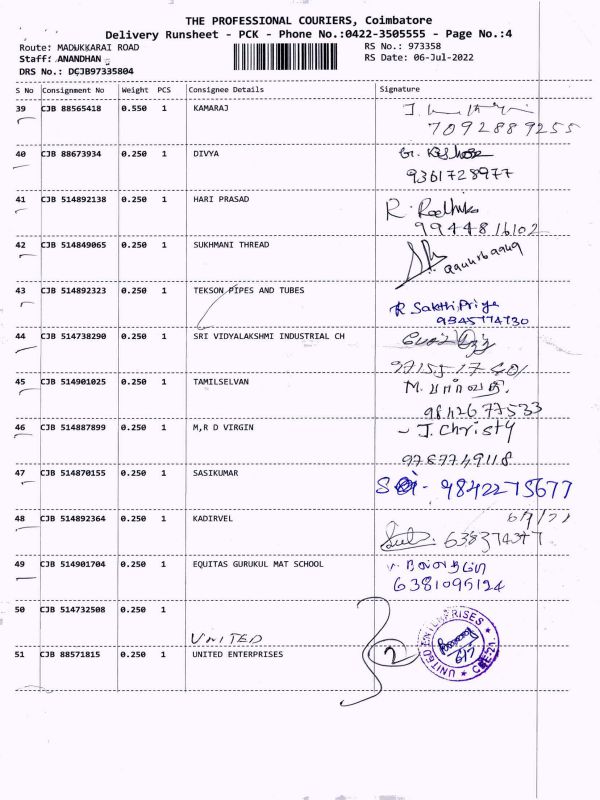 THE PROFESSIONAL COURIERS, Coimbatore
Delivery Runsheet - PCK - Phone No.:0422-3505555 - Page No.:4
Route: MADUKKARAI ROAD RS No.: 973358
Staff: ANANDHAN RS Date: 06-Jul-2022
DRS No.: DCJB97335804
S No Consignment No Weight PCS Consignee Details Signature
39 CJB 88565418 0.550 1 KAMARAJ
7092889255
40 CJB 88673934 0.250 1 DIVYA
9361728977
41 CJB 514892138 0.250 1 HARI PRASAD R. Radhika
9944816102
42 CJB 514849065 0.250 1 SUKHMANI THREAD
43 CJB 514892323 0.250 1 TEKSON PIPES AND TUBES
R Sakthi Priya
9345774730
44 CJB 514738290 0.250 1 SRI VIDYALAKSHMI INDUSTRIAL CH
97155 17401
45 CJB 514901025 0.250 1 TAMILSELVAN M. பார்வதி.
9842677533
46 CJB 514887899 0.250 1 M,R D VIRGIN - J. Christy
9787749118
47 CJB 514870155 0.250 1 SASIKUMAR
9842275677
48 CJB 514892364 0.250 1 KADIRVEL 6/7/22
49 CJB 514901704 0.250 1 EQUITAS GURUKUL MAT SCHOOL
6381095124
50 CJB 514732508 0.250 1
UNITED
51 CJB 88571815 0.250 1 UNITED ENTERPRISES 2
UNITED ENTERPRISES * CBE-21. *
6/7